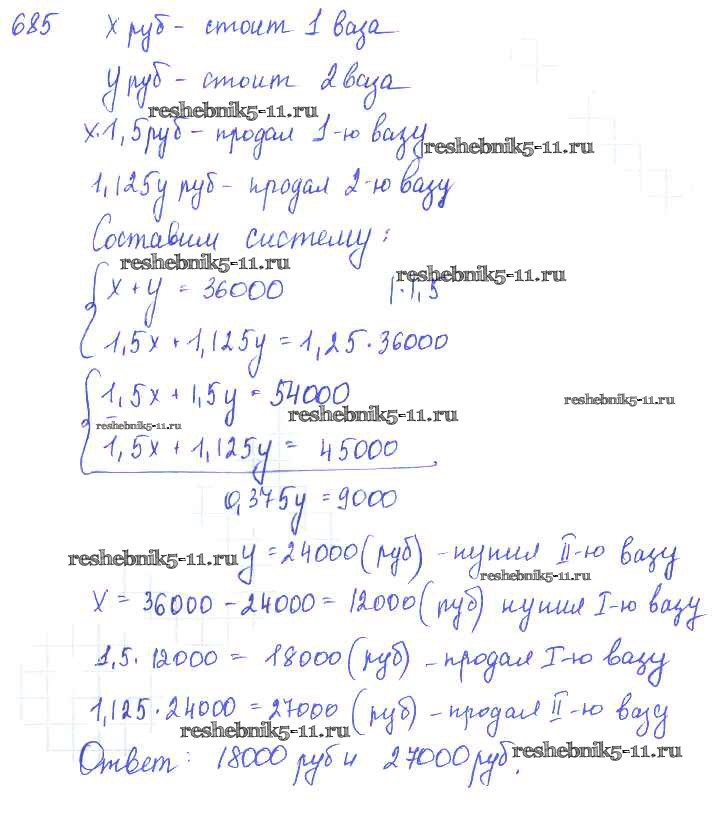 685 х руб - стоит 1 ваза
у руб - стоит 2 ваза
reshebnik5-11.ru
х·1,5 руб - продал 1-ю вазу
reshebnik5-11.ru
1,125у руб - продал 2-ю вазу
Составим систему:
reshebnik5-11.ru
reshebnik5-11.ru
х + у = 36000 |·1,5
1,5х + 1,125у = 1,25·36000
1,5х + 1,5у = 54000
reshebnik5-11.ru
reshebnik5-11.ru
reshebnik5-11.ru
1,5х + 1,125у = 45000
0,375у = 9000
reshebnik5-11.ru
у = 24000 (руб) - купил II-ю вазу
reshebnik5-11.ru
х = 36000 - 24000 = 12000 (руб) купил I-ю вазу
1,5 · 12000 = 18000 (руб) - продал I-ю вазу
1,125 · 24000 = 27000 (руб) - продал II-ю вазу
reshebnik5-11.ru
Ответ: 18000 руб и 27000 руб.
reshebnik5-11.ru